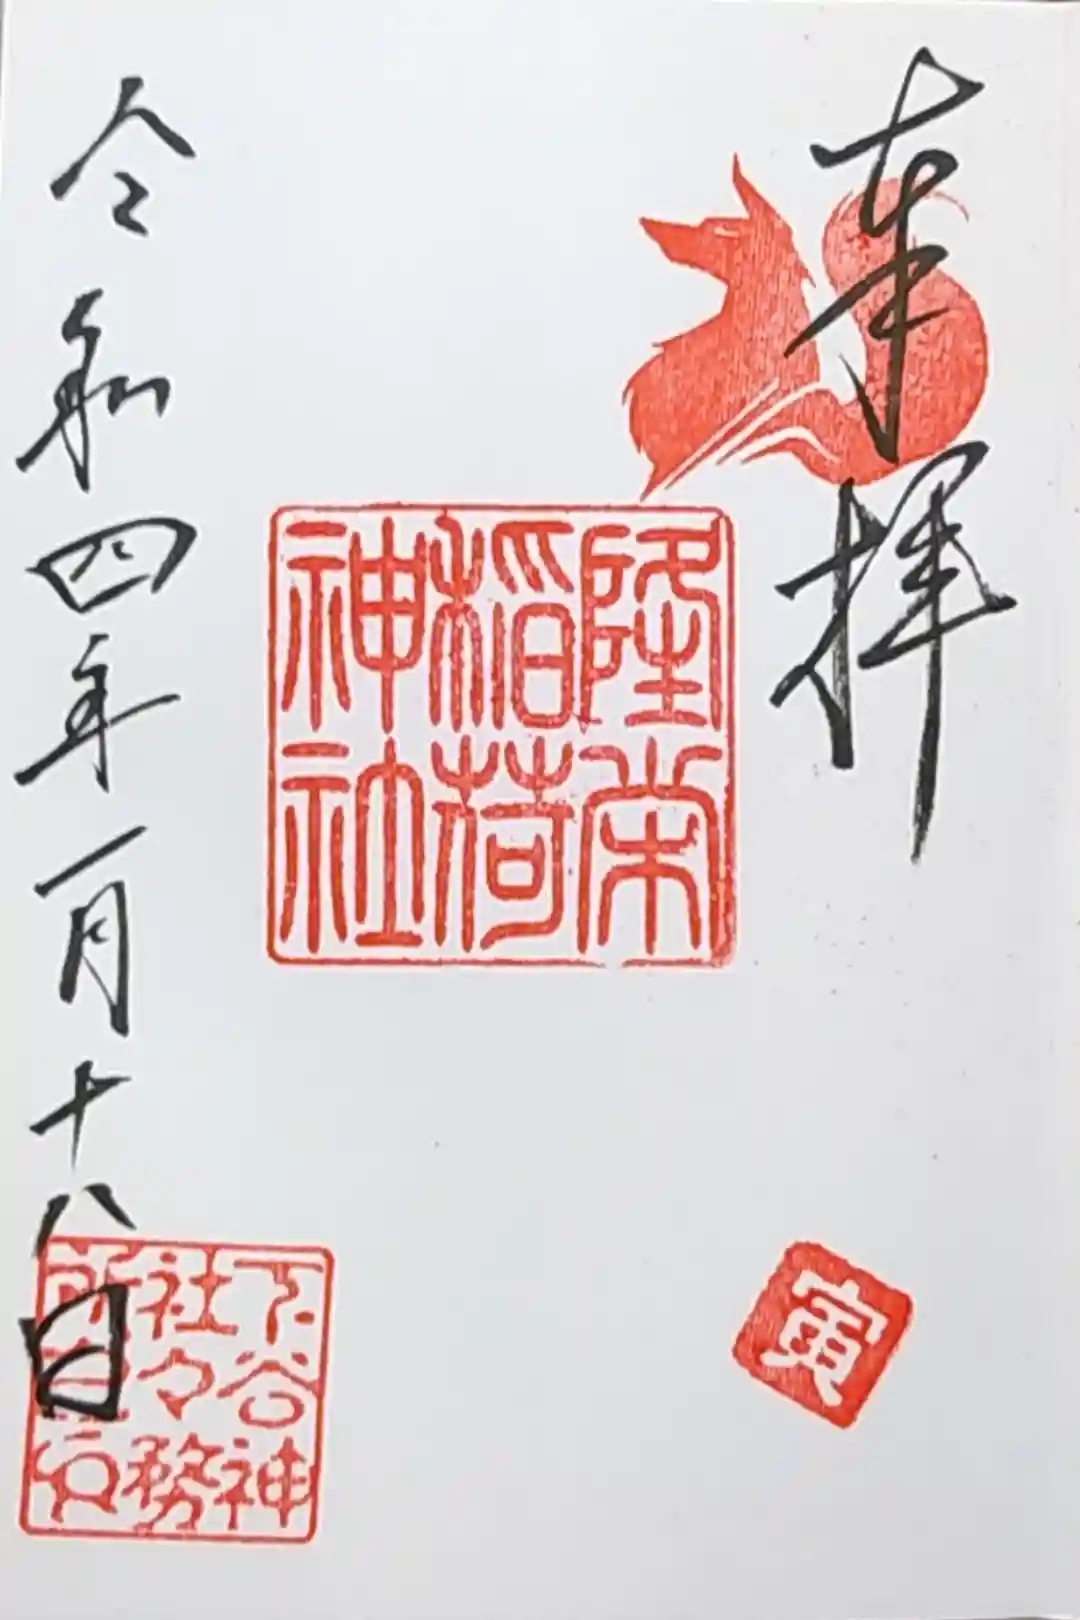 奉拝
隆栄
稲荷
神社
寅
令和四年一月十八日
下谷神
社々務
所之印